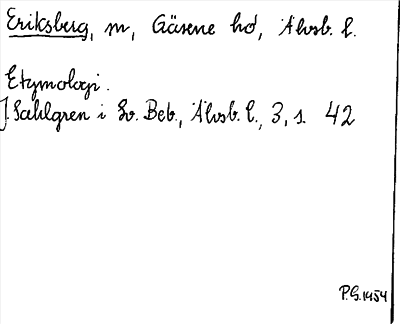 Eriksberg, m, Gäsene hd, Älvsb. l.
Etymologi.
J. Sahlgren i Sv. Beb., Älvsb. l., 3, s. 42
P.G. 1954